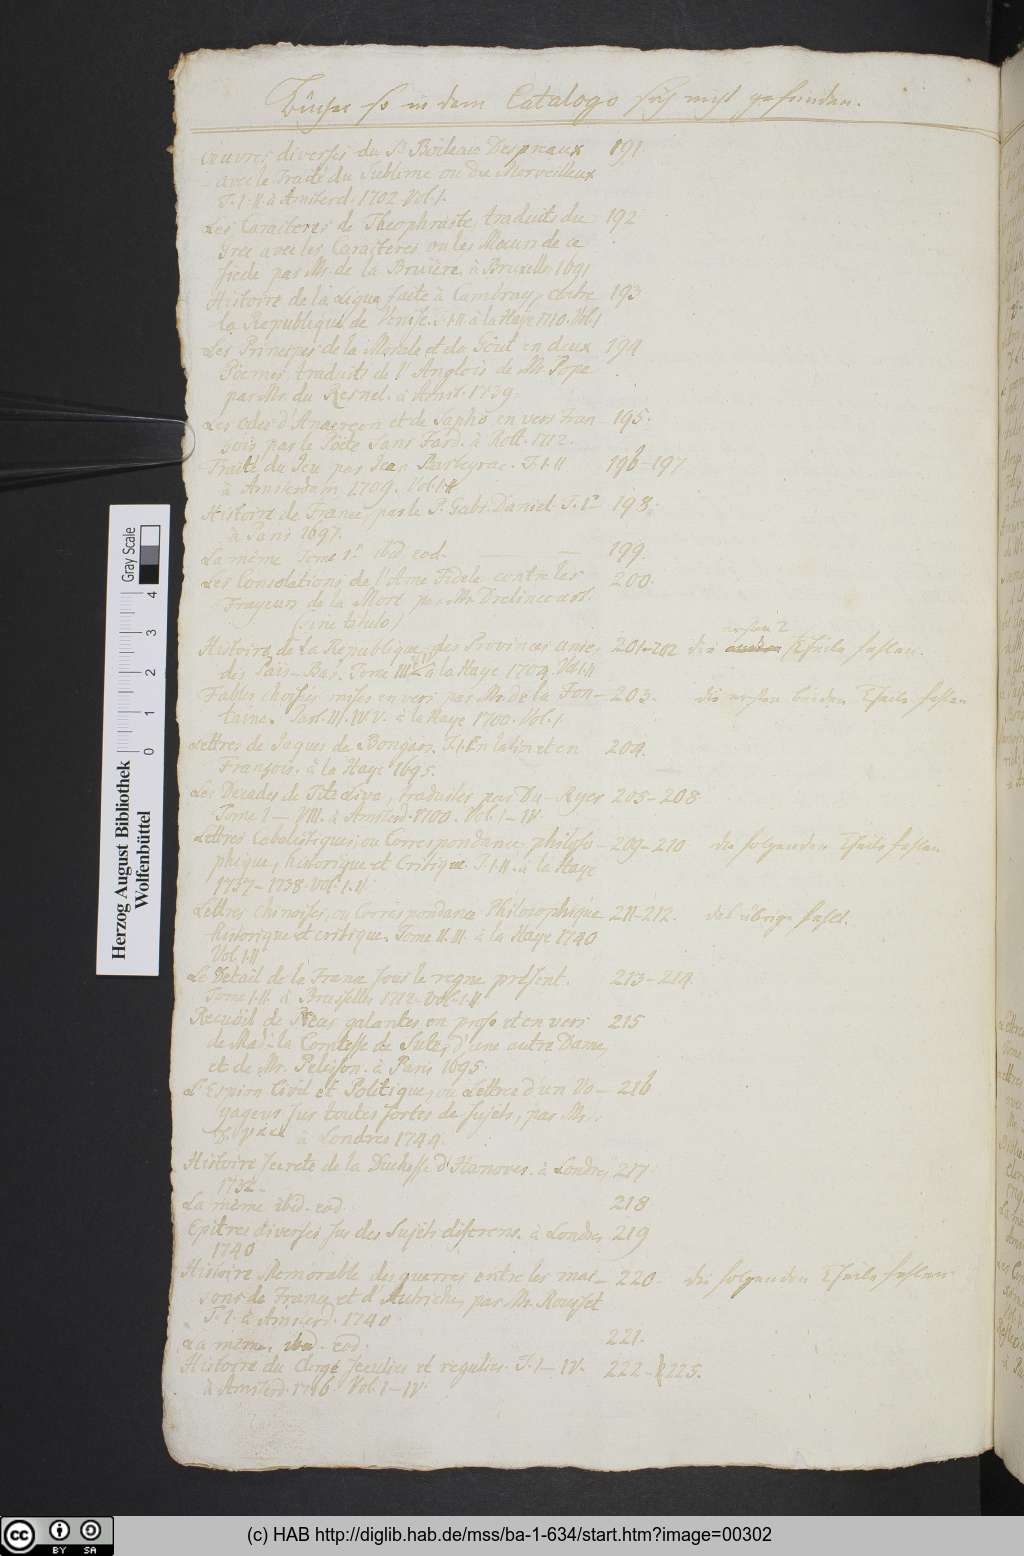 Bücher so in dem Catalogo sich nicht gefunden.
Oeuvres diverses du Sr Boileau Despreaux 191
avec le Traité du Sublime ou du Merveilleux
T. I. II. à Amsterd. 1702. Vol. I.
Les Caracteres de Theophraste, traduits du 192
Grec avec les Caracteres ou les Moeurs de ce
siecle par Mr. de la Bruiere à Bruxelles 1691
Histoire de la Ligue faite à Cambray, contre 193
la Republique de Venise. I-II. à la Haye 1710. Vol. I
Les Principes de la Morale et du Goût en deux 194
Poemes, traduits de l'Anglois de Mr. Pope
par Mr. du Resnel. à Amst. 1739.
Les Odes d'Anacreon et de Sapho en vers Fran 195.
çois par le Poëte Sans Fard. à Rott. 1712.
Traité du Jeu par Jean Barbeyrac. T. I. II 196-197
à Amsterdam 1709. Vol. I. II
Histoire de France, par le P. Gabr. Daniel. T. I. 198.
à Paris 1697.
La même Tome I. ibid. eod. 199.
Les Consolations de l'Ame Fidele contre les 200.
Frayeurs de la Mort par Mr. Drelincourt.
(sine titulo)
Histoire de la Republique des Provinces unies 201-202 die ersten 2 Theile fehlen.
des Païs-Bas. Tome III à la Haye 1704. Vol. I. II
Fables choisies mises en vers par Mr. de la Fon- 203. die ersten beiden Theile fehlen
taine. Part. III. IV. V. à la Haye 1700. Vol. I
Lettres de Jaques de Bongars. T. I. En latin et en 204.
François. à la Haye 1695.
Les Decades de Tite Live, traduites par Du-Ryer 205-208
Tome I - VIII. à Amsterd. 1700. Vol. I - IV.
Lettres Cabalistiques, ou Correspondance philoso- 209-210 die folgenden Theile fehlen
phique, historique et Critique. T. I. II. à la Haye
1737-1738. Vol. I. II
Lettres chinoises, ou Correspondance Philosophique 211-212. das übrige fehlt.
historique et critique. Tome II. III. à la Haye 1740
Vol. I. II
Le Detail de la France sous le regne présent. 213-214.
Tome I. II. à Bruxelles 1712. Vol. I. II
Recuëil de Pieces galantes, en prose et en vers 215
de Mad. la Comtesse de Suze, d'une autre Dame,
et de Mr. Pelisson. à Paris 1695.
L'Espion Civil et Politique, ou Lettres d'un Vo- 216
yageur sur toutes sortes de sujets, par Mr.
à Londres 1744.
Histoire secrete de la Duchesse d'Hanover. à Londres 217
1732.
La même ibid. eod. 218
Epitres diverses sur des Sujets differens. à Londres 219
1740
Histoire Memorable des guerres entre les mai- 220. die folgenden Theile fehlen.
sons de France et d'Autriche, par Mr. Rousset
T. I. à Amsterd. 1740
La même, ibid. eod. 221.
Histoire du Clergé seculier et regulier. T. I - IV. 222-225.
à Amsterd. 1716 Vol. I - IV.
Gray Scale
0 1 2 3 4
Herzog August Bibliothek
Wolfenbüttel
cc BY SA
(c) HAB http://diglib.hab.de/mss/ba-1-634/start.htm?image=00302